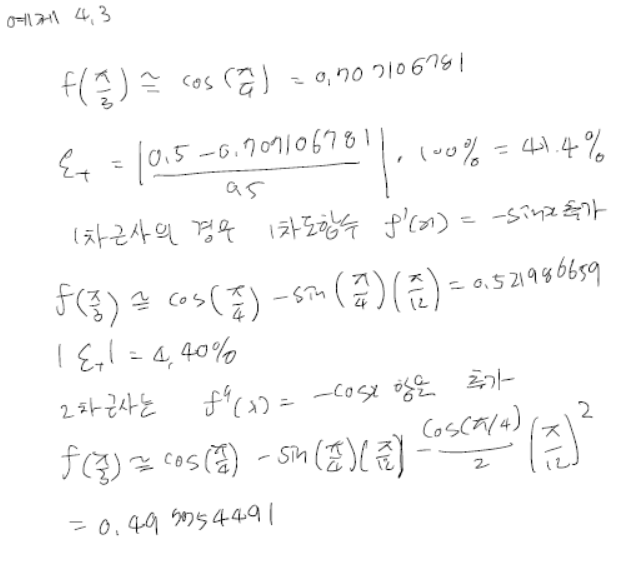 예제 4.3
f(π/3) ≅ cos(π/4) = 0.707106781
ε_t = |(0.5 - 0.707106781)/0.5| · 100% = 41.4%
1차근사의 경우 1차도함수 f'(x) = -sinx 추가
f(π/3) ≅ cos(π/4) - sin(π/4)(π/12) = 0.521986659
|ε_t| = 4.40%
2차근사는 f''(x) = -cosx 항을 추가
f(π/3) ≅ cos(π/4) - sin(π/4)(π/12) - cos(π/4)/2 (π/12)²
= 0.497754491